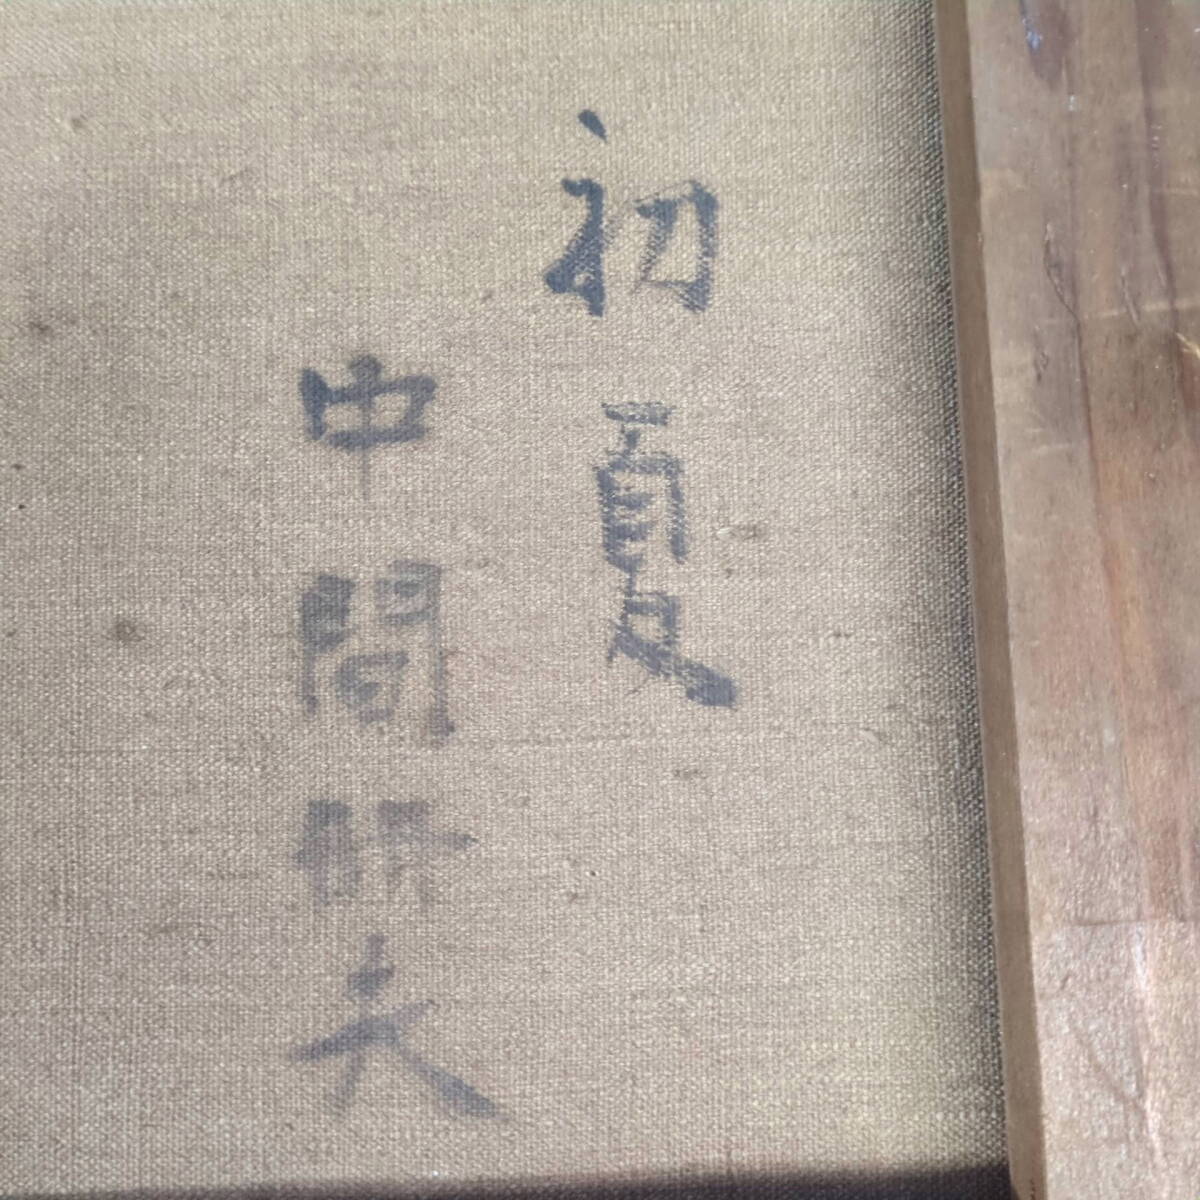 初夏
中間
夫